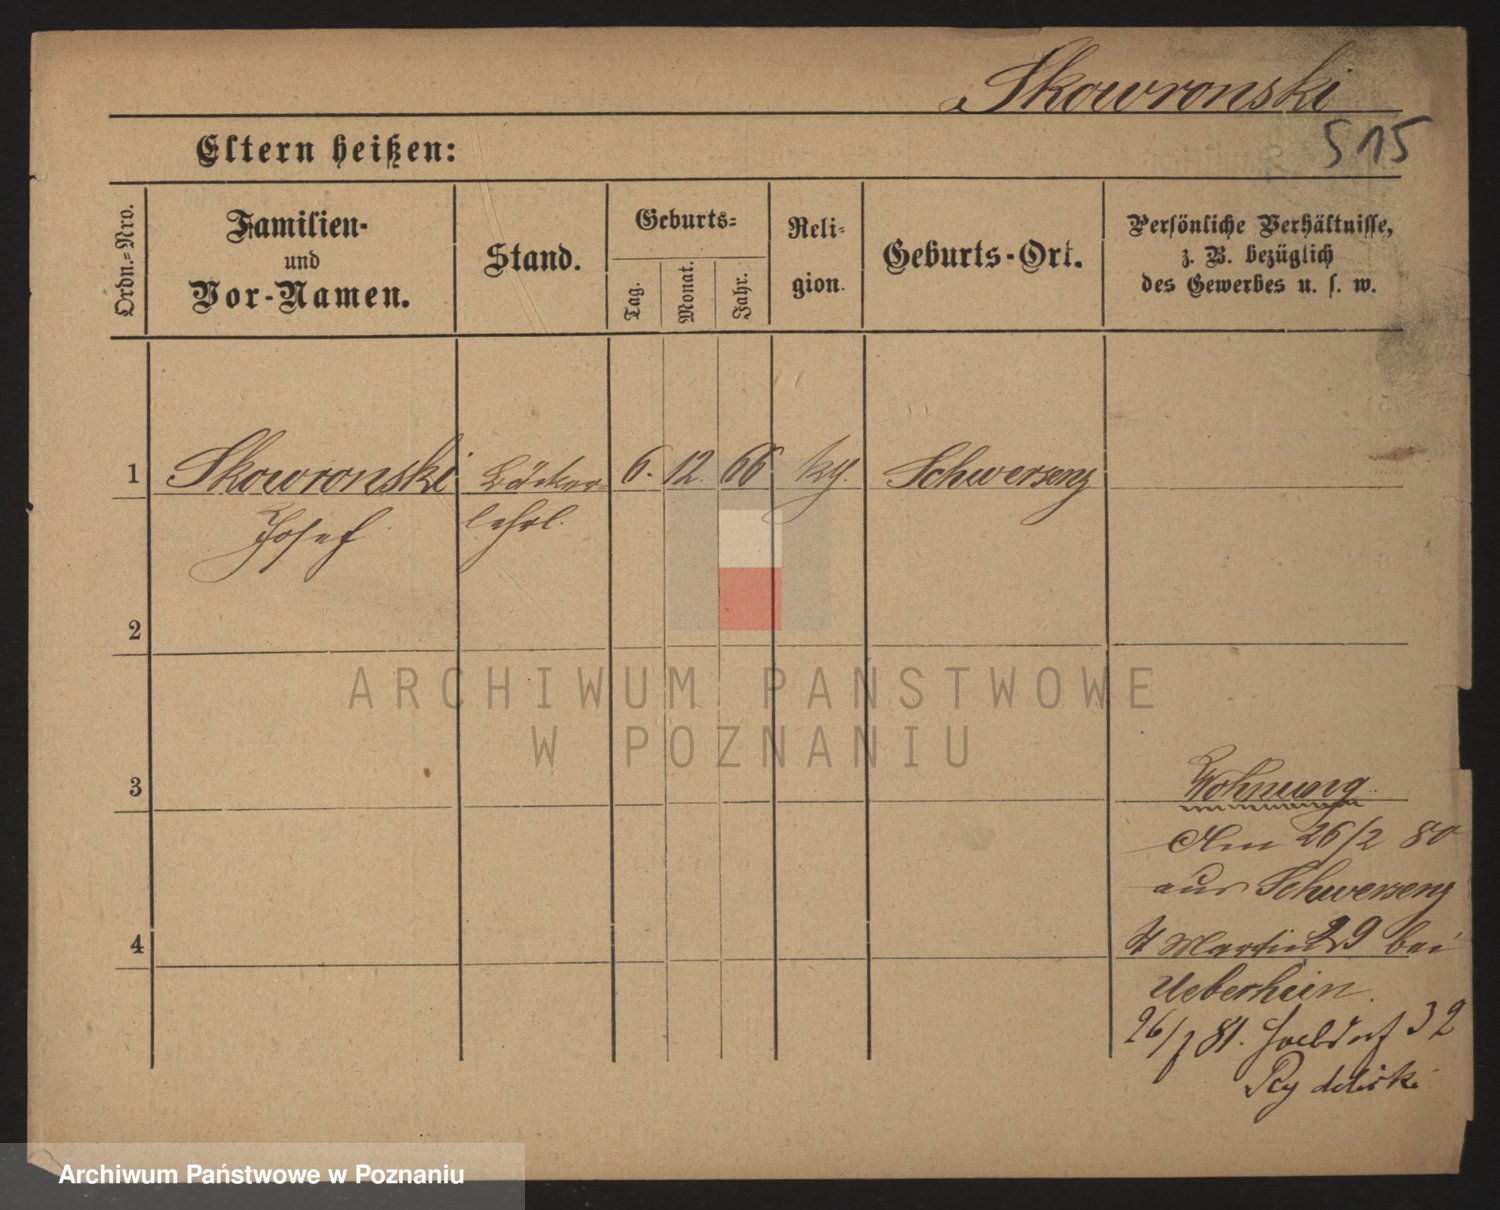 Skowronski
515
Eltern heißen:
Ordn.-Nro.
Familien-
und
Vor-Namen.
Stand.
Geburts-
Tag.
Monat.
Jahr.
Reli-
gion.
Geburts-Ort.
Persönliche Verhältnisse,
z. B. bezüglich
des Gewerbes u. s. w.
1
Skowronski
Josef
Bäcker-
lehrl.
6. 12. 66
Schwersenz
2
3
4
Wohnung
Am 26/2 80
aus Schwersenz
St Martin 29 bei
Ueberhein.
26/7 81. 32
ARCHIWUM PAŃSTWOWE
W POZNANIU
Archiwum Państwowe w Poznaniu